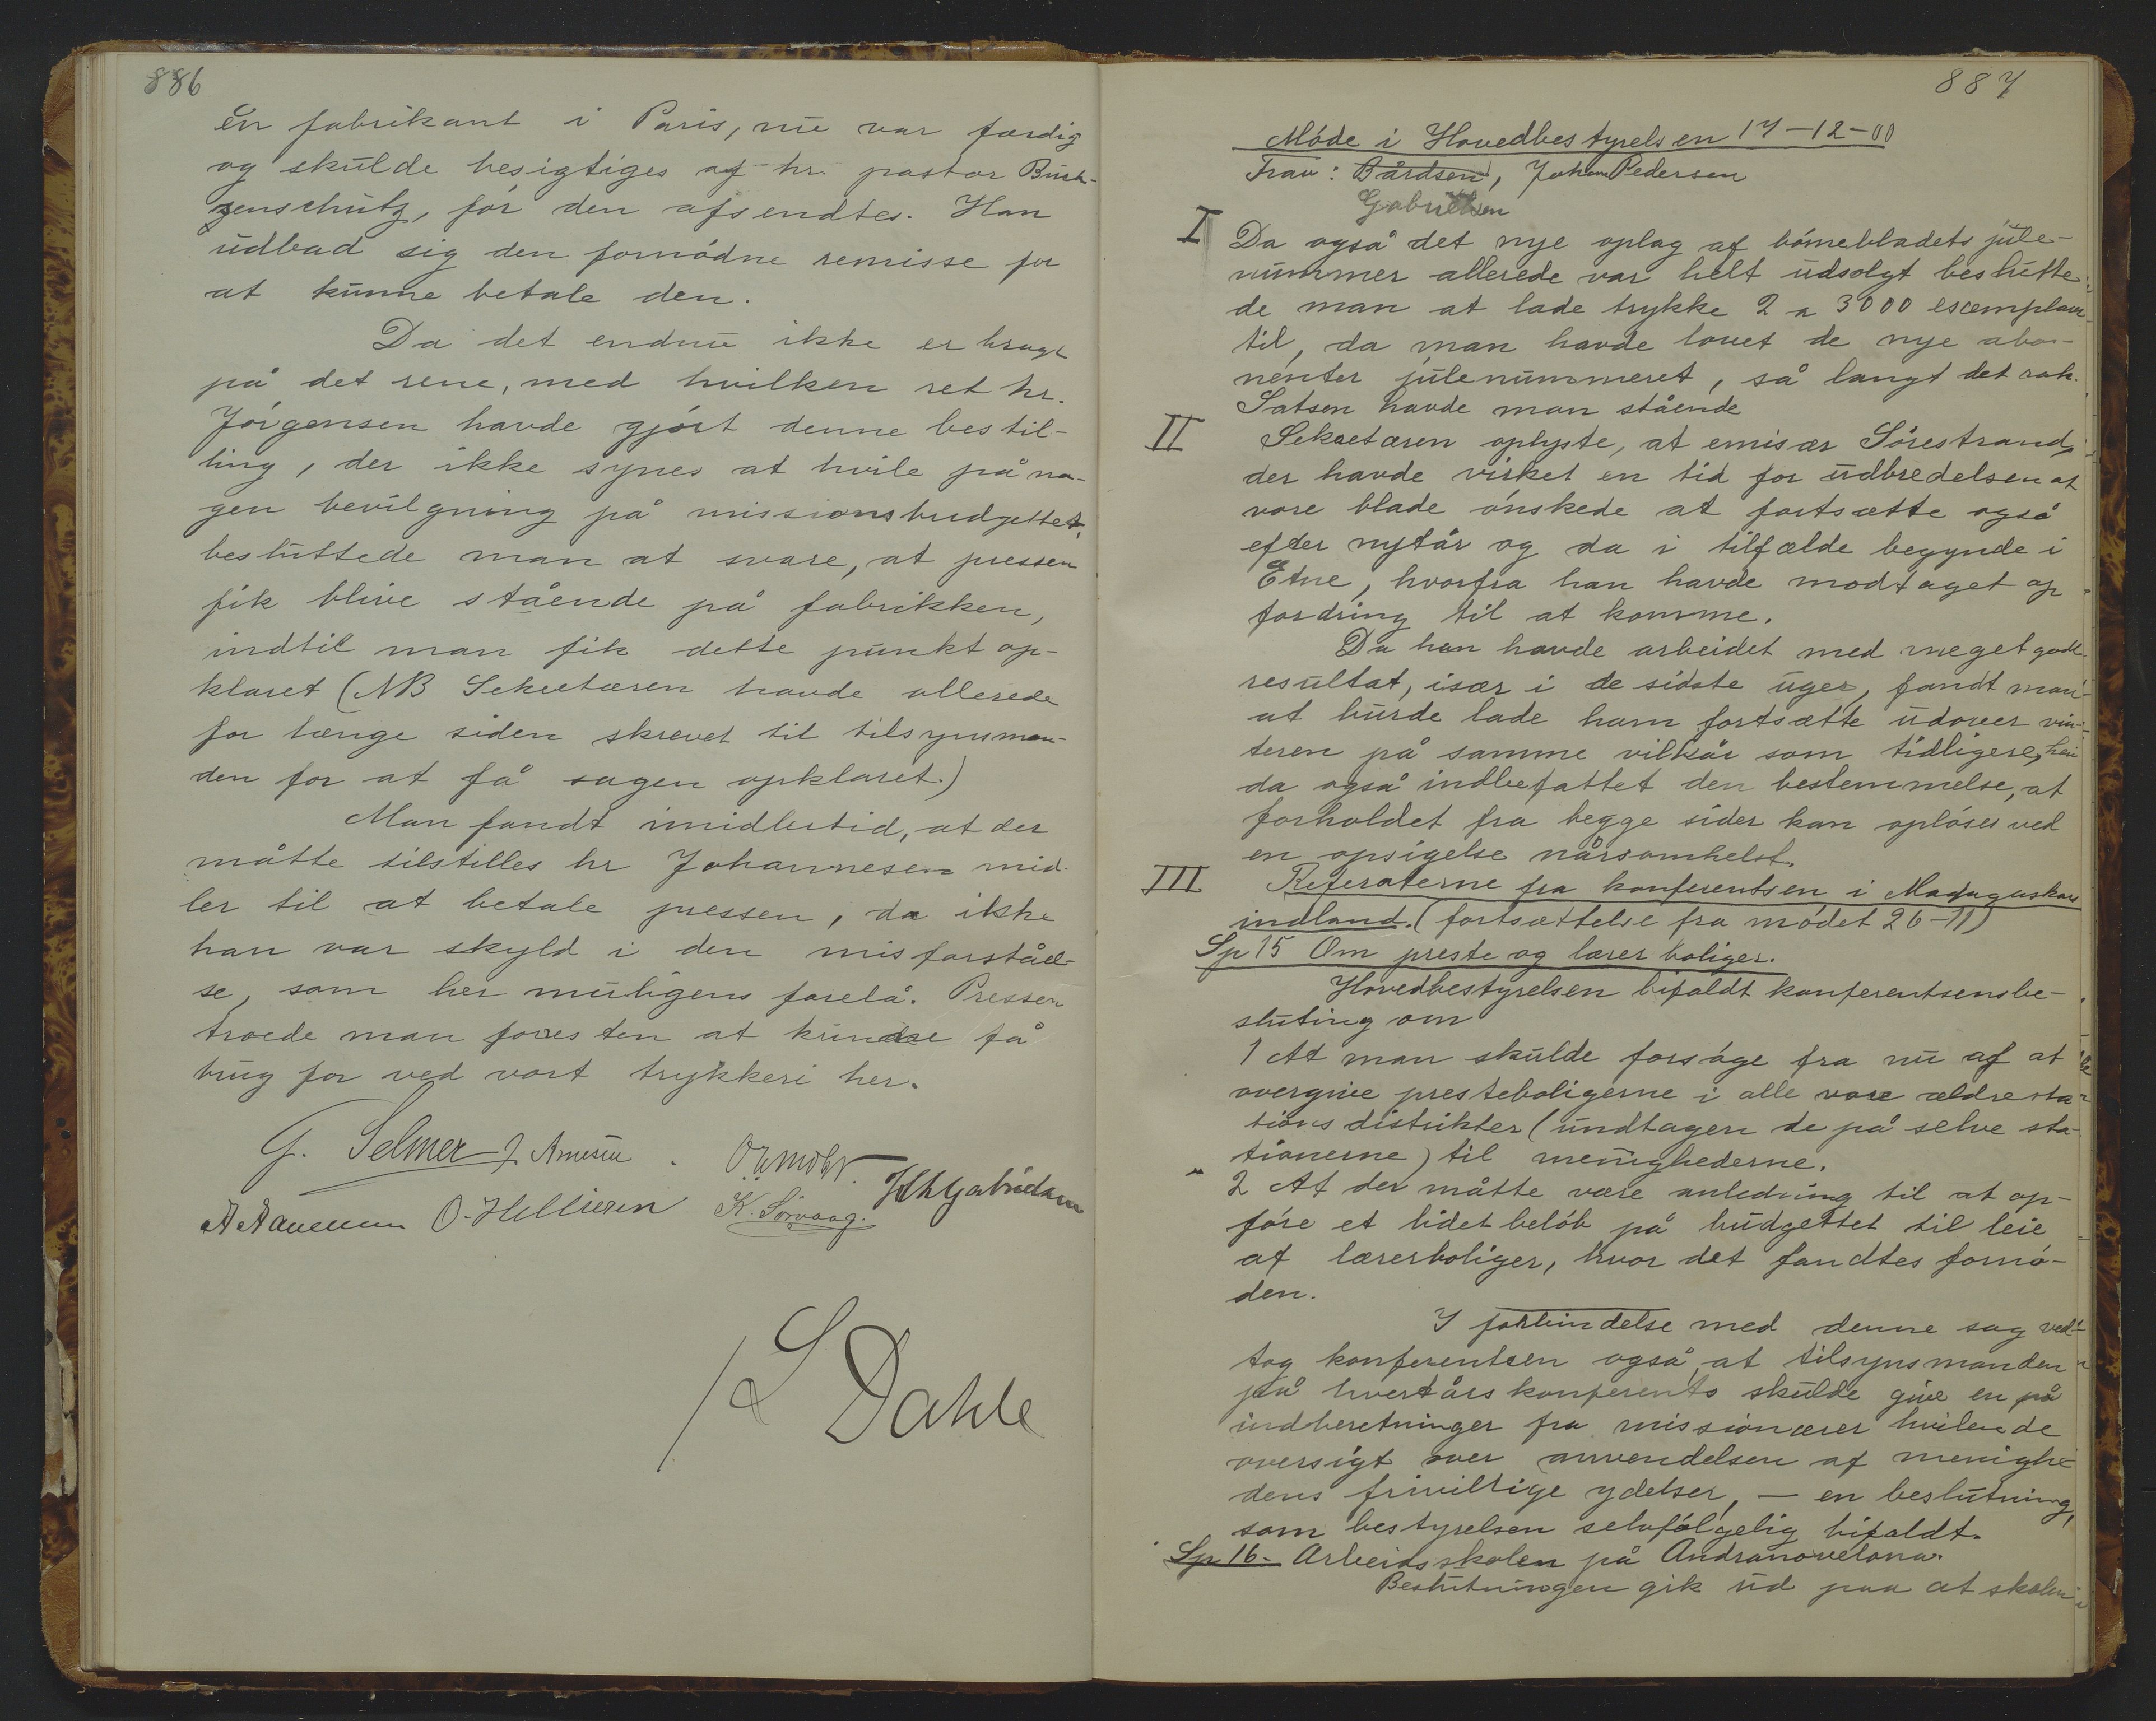 886
en fabrikant i Paris, nu var færdig
og skulde besigtiges af hr. pastor Büch-
zenschütz, för den afsendtes. Han
udbad sig den fornödne remisse for
at kunne betale den.
Da det endnu ikke er bragt
på det rene, med hvilken ret hr.
Jörgensen havde gjört denne bestil-
ling, der ikke synes at hvile på no-
gen bevilgning på missionsbudgettet,
besluttede man at svare, at pressen
fik blive stående på fabrikken,
indtil man fik dette punkt op-
klaret (NB Sekretæren havde allerede
for længe siden skrevet til tilsynsman-
den for at få sagen opklaret.)
Man fandt imidlertid, at der
måtte tilstilles hr Johannesen mid-
ler til at betale pressen, da ikke
han var skyld i den misforståel-
se, som her muligens forelå. Pressen
troede man foresten at kunne få
brug for ved vort trykkeri her.
G. Selmer
K. Sörvaag.
L Dahle
887
Möde i Hovedbestyrelsen 17-12-00
Frav: Bårdsen, Johan Pedersen
Gabrielsen
I Da også det nye oplag af börnebladets jule-
nummer allerede var helt udsolgt beslutte-
de man at lade trykke 2 a 3000 exemplarer
til, da man havde lovet de nye abon-
nenter julenummeret, så langt det rak.
Satsen havde man stående
II Sekretæren oplyste, at emisær Sörestrand,
der havde virket en tid for udbredelsen af
vore blade önskede at fortsætte også
efter nytår og da i tilfælde begynde i
Etne, hvorfra han havde modtaget op
fordring til at komme.
Da han havde arbeidet med meget godt
resultat, især i de sidste uger, fandt man
at burde lade ham fortsætte udover vin-
teren på samme vilkår som tidligere, heri
da også indbefattet den bestemmelse, at
forholdet fra begge sider kan oplöses ved
en opsigelse nårsomhelst.
III Referaterne fra konferentsen i Madagaskars
indland. (fortsættelse fra mödet 26-11)
Sp 15 Om preste og lærer boliger.
Hovedbestyrelsen bifaldt konferentsens be-
sluting om
1 At man skulde forsöge fra nu af at
overgive presteboligerne i alle vore ældre sta-
tions distrikter (undtagen de på selve sta-
tionerne) til menighederne.
2 At der måtte være anledning til at op-
före et lidet belöb på budgettet til leie
af lærerboliger, hvor det fandtes fornö-
den.
I forbindelse med denne sag ved-
tog konferentsen også, at tilsynsmanden
på hvert års konferents skulde give en på
indberetninger fra missionærer hvilende
oversigt over anvendelsen af menighe
dens frivillige ydelser, — en beslutning,
som bestyrelsen selvfölgelig bifaldt.
Sp 16. Arbeidsskolen på Andranovelona.
Beslutningen gik ud paa at skolen